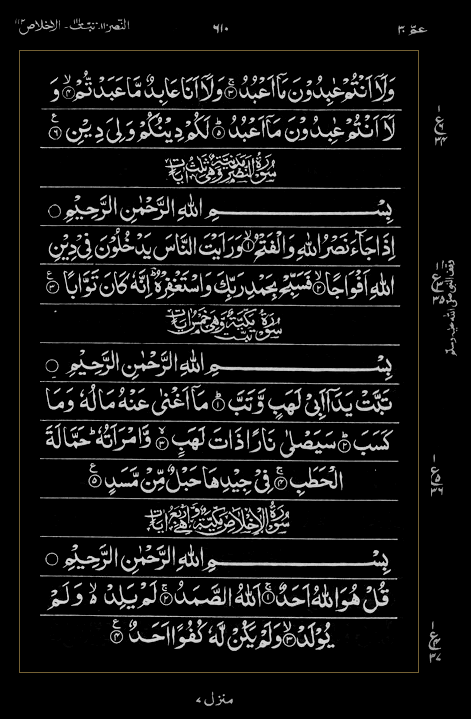 عمّ ٣٠
٦١٠
النصر ١١٠، تبت ١١١ - الاخلاص ١١٢
وَلَاۤ اَنْتُمْ عٰبِدُوْنَ مَاۤ اَعْبُدُ ۚ‏﴿٣﴾ وَلَاۤ اَنَا عَابِدٌ مَّا عَبَدْتُّمْ ۙ‏﴿٤﴾ وَ
لَاۤ اَنْتُمْ عٰبِدُوْنَ مَاۤ اَعْبُدُ ؕ‏﴿٥﴾ لَكُمْ دِيْنُكُمْ وَلِىَ دِيْنِ ﴿٦﴾ ع
سُوْرَةُ النَّصْرِ مَدَنِيَّةٌ وَّهِىَ ثَلٰثُ اٰيَاتٍ
بِسْمِ اللهِ الرَّحْمٰنِ الرَّحِيْمِ
اِذَا جَآءَ نَصْرُ اللهِ وَالْفَتْحُ ۙ‏﴿١﴾ وَرَاَيْتَ النَّاسَ يَدْخُلُوْنَ فِىْ دِيْنِ
اللهِ اَفْوَاجًا ۙ‏﴿٢﴾ فَسَبِّحْ بِحَمْدِ رَبِّكَ وَاسْتَغْفِرْهُ ؕ اِنَّهٗ كَانَ تَوَّابًا ﴿٣﴾ ع
سُوْرَةُ تَبَّتْ مَكِّيَّةٌ وَّهِىَ خَمْسُ اٰيَاتٍ
بِسْمِ اللهِ الرَّحْمٰنِ الرَّحِيْمِ
تَبَّتْ يَدَاۤ اَبِىْ لَهَبٍ وَّتَبَّ ؕ‏﴿١﴾ مَاۤ اَغْنٰى عَنْهُ مَالُهٗ وَمَا
كَسَبَ ؕ‏﴿٢﴾ سَيَصْلٰى نَارًا ذَاتَ لَهَبٍ ۙ‏﴿٣﴾ وَّامْرَاَتُهٗ ؕ حَمَّالَةَ
الْحَطَبِ ۚ‏﴿٤﴾ فِىْ جِيْدِهَا حَبْلٌ مِّنْ مَّسَدٍ ﴿٥﴾ ع
سُوْرَةُ الْاِخْلَاصِ مَكِّيَّةٌ وَّهِىَ اَرْبَعُ اٰيَاتٍ
بِسْمِ اللهِ الرَّحْمٰنِ الرَّحِيْمِ
قُلْ هُوَ اللهُ اَحَدٌ ۚ‏﴿١﴾ اَللهُ الصَّمَدُ ۚ‏﴿٢﴾ لَمْ يَلِدْ ۙ وَلَمْ
يُوْلَدْ ۙ‏﴿٣﴾ وَلَمْ يَكُنْ لَّهٗ كُفُوًا اَحَدٌ ﴿٤﴾ ع
ع ٣٤
ع ٣٥
وقف النبي صلى الله عليه وسلم
ع ٣٦
ع ٣٧
منزل ٧